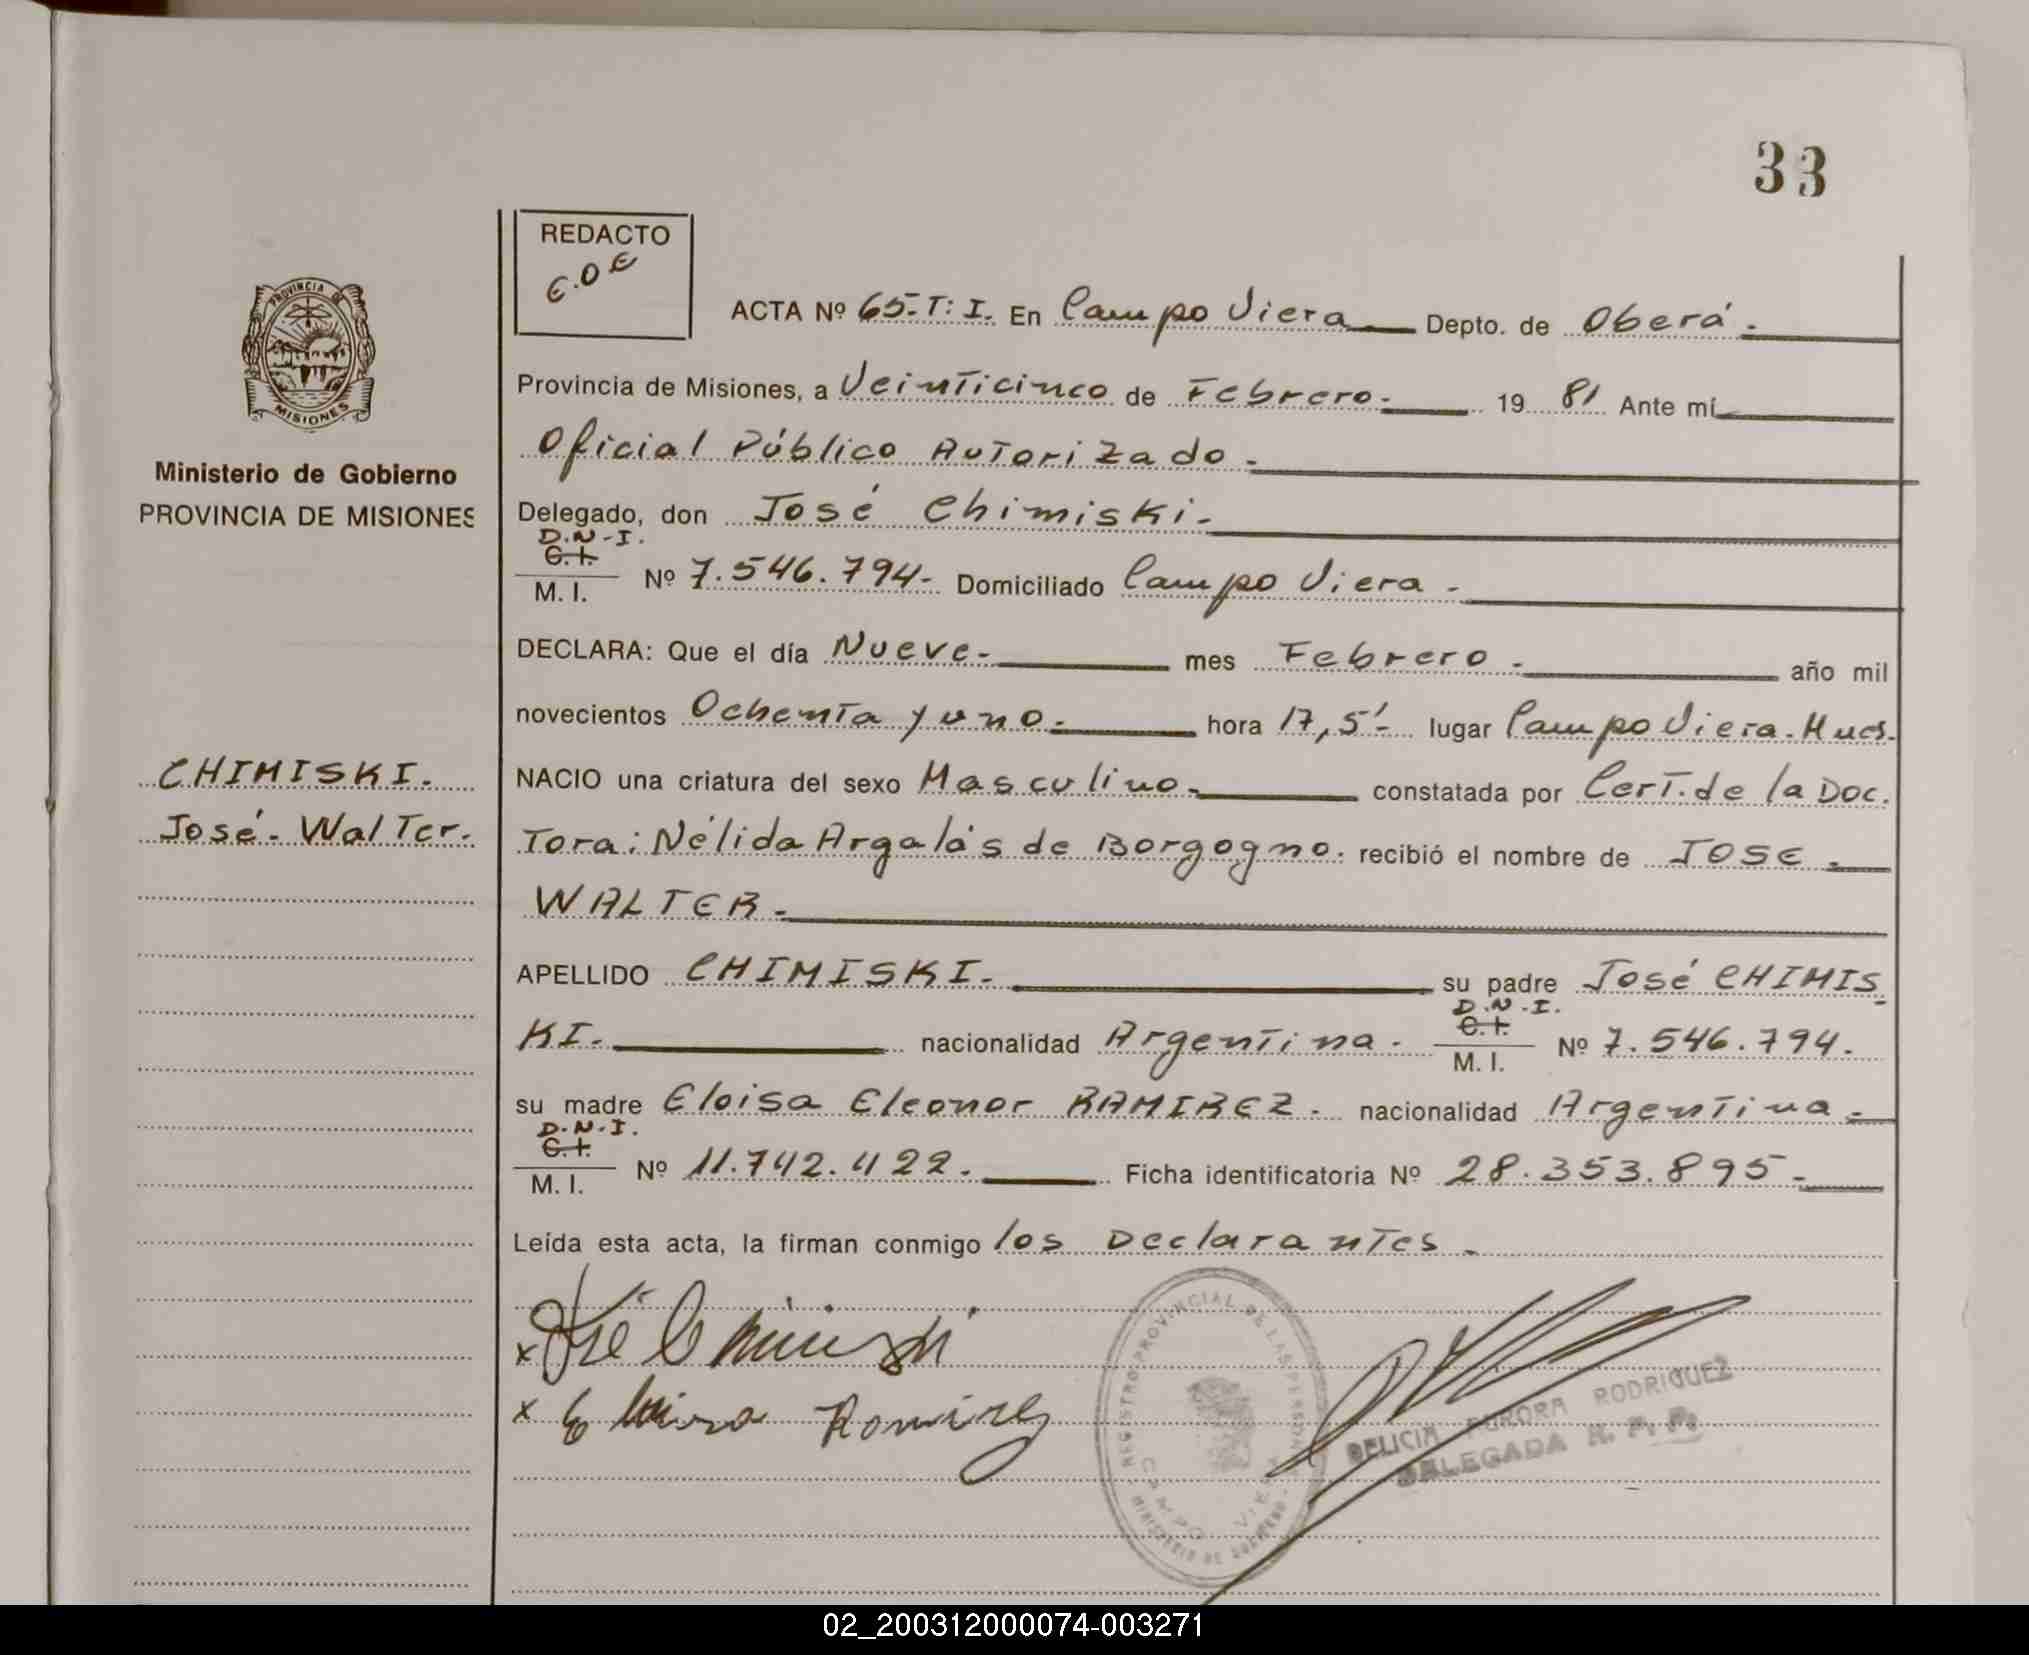 33
REDACTO
E.O.E
PROVINCIA DE
MISIONES
Ministerio de Gobierno
PROVINCIA DE MISIONES
CHIMISKI.
José-Walter.
ACTA Nº 65-T:I. En Campo Viera Depto. de Oberá.
Provincia de Misiones, a Veinticinco de Febrero. 19 81 Ante mí
Oficial Público Autorizado.
Delegado, don José Chimiski.
D.N.I.
C.I.
M. I. Nº 7.546.794- Domiciliado Campo Viera.
DECLARA: Que el día Nueve- mes Febrero. año mil
novecientos Ochenta y uno. hora 17,5'- lugar Campo Viera.
NACIO una criatura del sexo Masculino. constatada por Cert. de la Doc.
Tora: Nélida Argalás de Borgogno. recibió el nombre de JOSE.
WALTER.
APELLIDO CHIMISKI. su padre José CHIMIS
KI. nacionalidad Argentina. D.N.I. C.I. M. I. Nº 7.546.794.
su madre Eloisa Eleonor RAMIREZ. nacionalidad Argentina.
D.N.I.
C.I.
M. I. Nº 11.742.422. Ficha identificatoria Nº 28.353.895-
Leída esta acta, la firman conmigo los Declarantes.
x José Chimiski
x Ramirez
REGISTRO PROVINCIAL DE LAS PERSONAS
CAMPO VIERA
MINISTERIO DE GOBIERNO
DELICIA AURORA RODRIGUEZ
DELEGADA R. P. P.
02_200312000074-003271